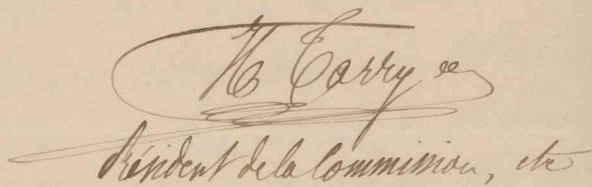 H Tarry
Président de la Commission, etc